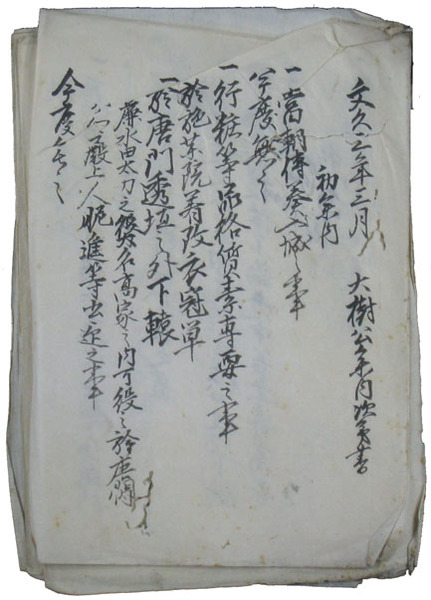 文久三年三月 大樹公参内次第書
初参内
一當朝傳奏入城之事
今度無之
一行粧等品格質素専要之事
於施薬院着改衣冠単
一於唐門透垣之外下轅
太刀之役名高家之内可役之於唐門
公卿殿上人晩進等出迎之事
今度無之